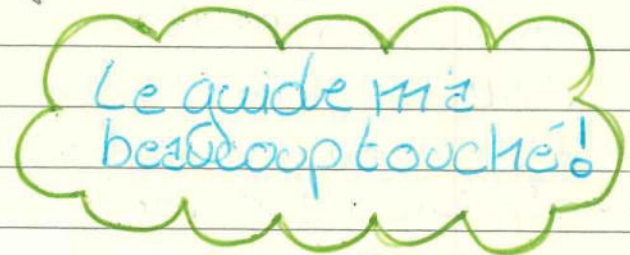 Le guide m'a
beaucoup touché!